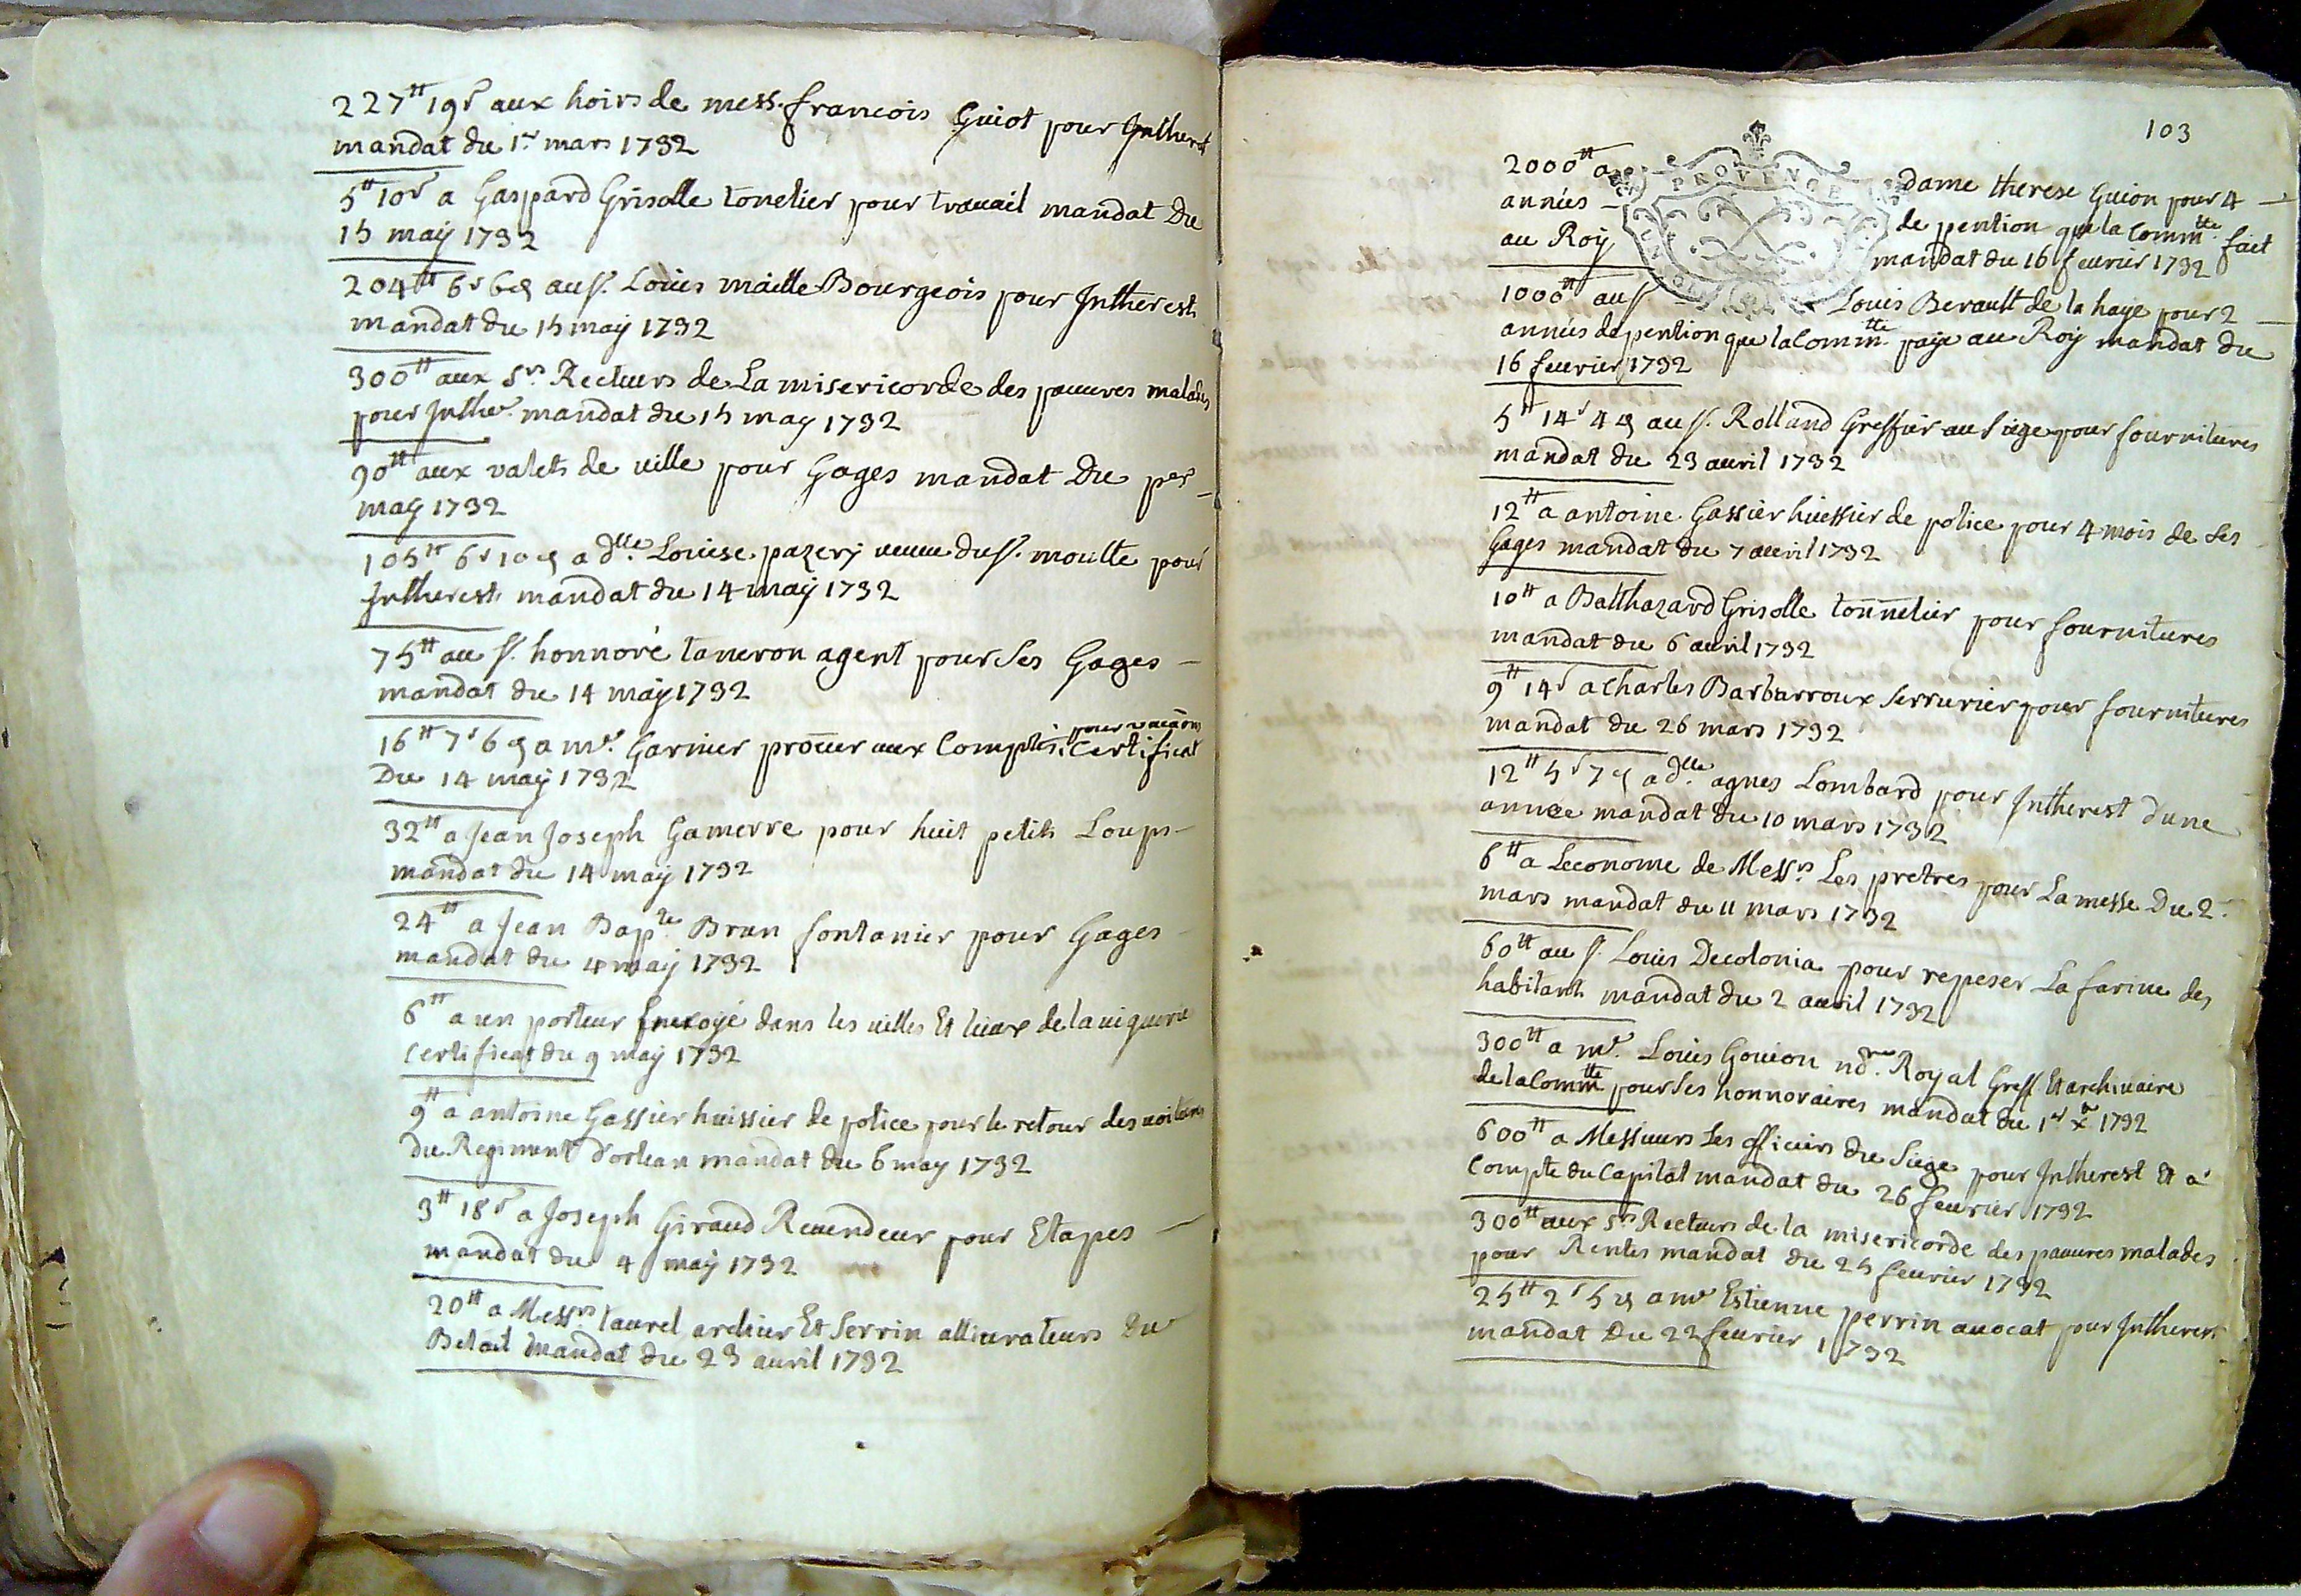 227tt 19s aux hoirs de mess. francois Guiot pour Intherest
mandat du 1er mars 1732
5tt 10s a Gaspard Grisolle tonelier pour travail mandat du
15 maÿ 1732
204tt 6s 6d au sr. Louis maille Bourgeois pour Intherest
mandat du 15 maÿ 1732
300tt aux srs. Recteurs de La misericorde des pauvres malades
pour Inthet. mandat du 15 may 1732
90tt aux valets de ville pour Gages mandat du per
may 1732
105tt 6s 10d a dlle. Louise pazery veuve du sr. moutte pour
Intherest mandat du 14 maÿ 1732
75tt au sr. honnoré taneron agent pour ses Gages
mandat du 14 maÿ 1732
16tt 7s 6d a me. Garnier procur aux Comptes, pour vacaons Certificat
Du 14 maÿ 1732
32tt a Jean Joseph Gamerre pour huit petits Loups
mandat du 14 maÿ 1732
24tt a Jean Bapte. Brun fontanier pour Gages
mandat du 4 maÿ 1732
6tt a un porteur Envoyé dans les villes Et lieux de la viguerie
Certificat du 9 maÿ 1732
9tt a antoine Gassier huissier de police pour le retour des voitures
du Regiment d'orlean mandat du 6 may 1732
3tt 18s a Joseph Giraud Revendeur pour Etapes
mandat du 4 maÿ 1732
20tt a Messrs. taurel archier Et Serrin allivrateurs du
Betail mandat du 23 avril 1732
103
PROVENCE
2000tt a dame therese Guion pour 4
années de pention que la Commtté. fait
au Roÿ mandat du 16 fevrier 1732
1000tt au sr Louis Berault de la haye pour 2
années de pention que la Commtté. paye au Roÿ mandat du
16 fevrier 1732
5tt 14s 4d au sr. Rolland Greffier au siege pour fournitures
mandat du 23 avril 1732
12tt a antoine Gassier huissier de police pour 4 mois de ses
Gages mandat du 7 avril 1732
10tt a Balthazard Grisolle tonnelier pour fournitures
mandat du 6 avril 1732
9tt 14s a Charles Barbarroux serrurier pour fournitures
mandat du 26 mars 1732
12tt 5s 7d a dlle. agnes Lombard pour Intherest dune
année mandat du 10 mars 1732
6tt a Leconome de Messrs. Les pretres pour La messe Du 2.
mars mandat du 11 mars 1732
60tt au sr. Louis Decolonia pour repeser La farine des
habitants mandat du 2 avril 1732
300tt a me. Louis Gouion nore. Royal Greff. Et archivaire
de la Commtté pour ses honnoraires mandat du 1er xbre 1732
600tt a Messieurs Les officiers du Siege pour Intherest Et à
Compte du Capital mandat du 26 fevrier 1732
300tt aux srs Recteurs de la misericorde des pauvres malades
pour Rentes mandat du 25 fevrier 1732
25tt 2s 5d a me Estienne perrin avocat pour Intherest
mandat du 22 fevrier 1732